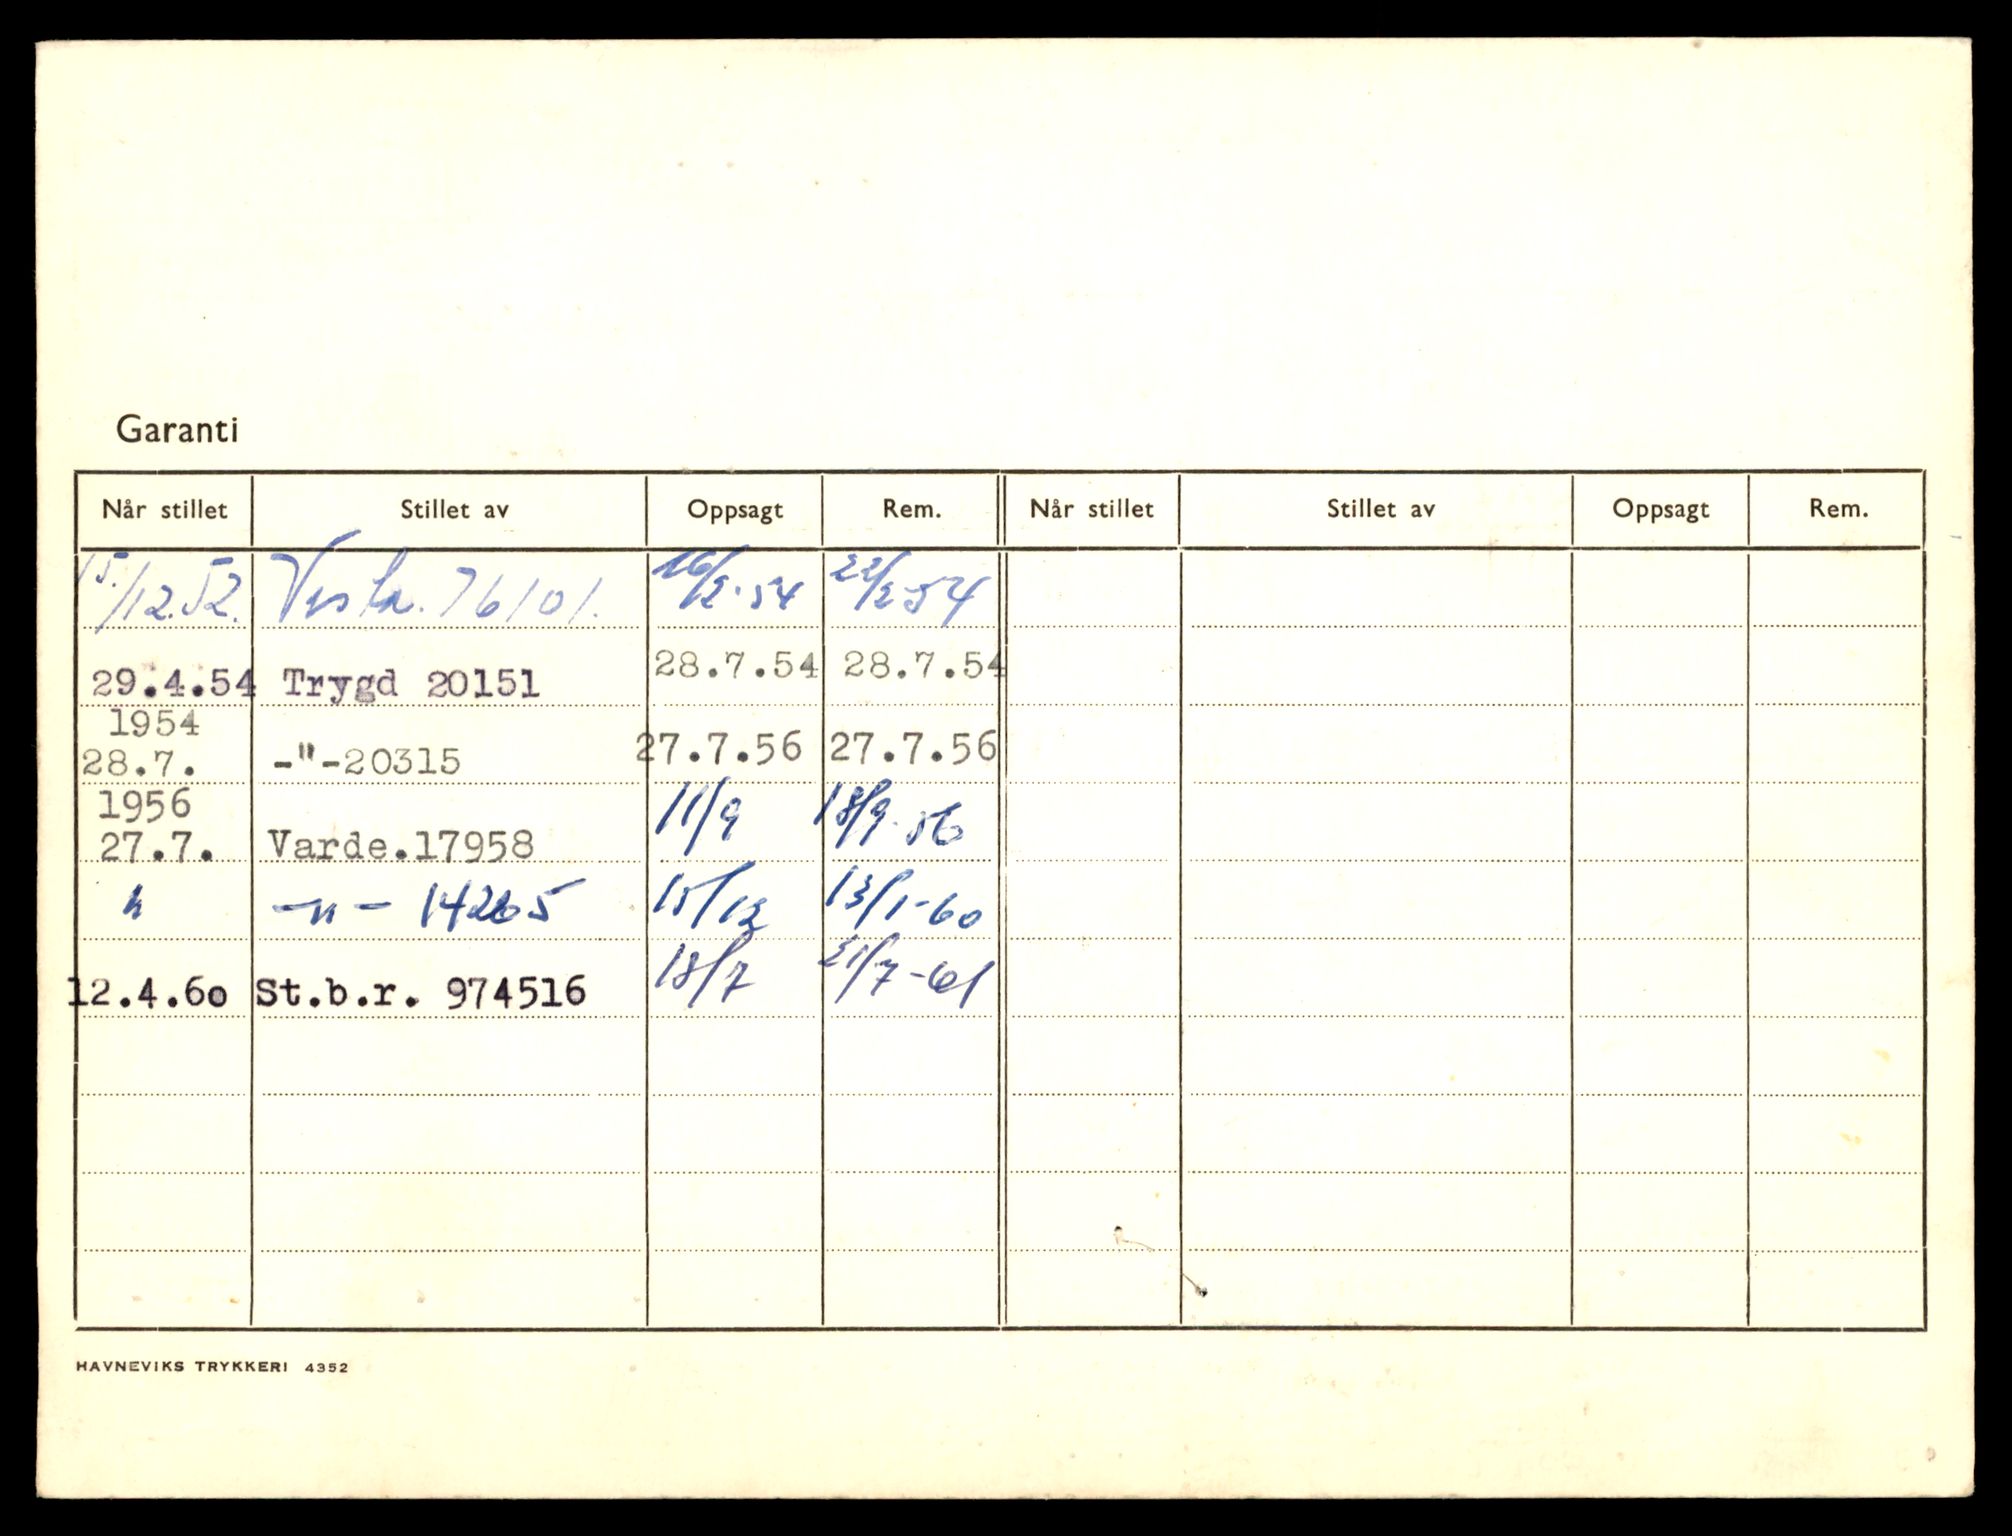 Garanti
Når stillet Stillet av Oppsagt Rem. Når stillet Stillet av Oppsagt Rem.
15./12.52. Vesta. 76101. 16/2.54 22/2-54
29.4.54 Trygd 20151 28.7.54 28.7.54
1954
28.7. -"-20315 27.7.56 27.7.56
1956
27.7. Varde.17958 11/9 18/9.56
" -"- 14265 15/12 13/1-60
12.4.60 St.b.r. 974516 18/7 21/7-61
HAVNEVIKS TRYKKERI 4352